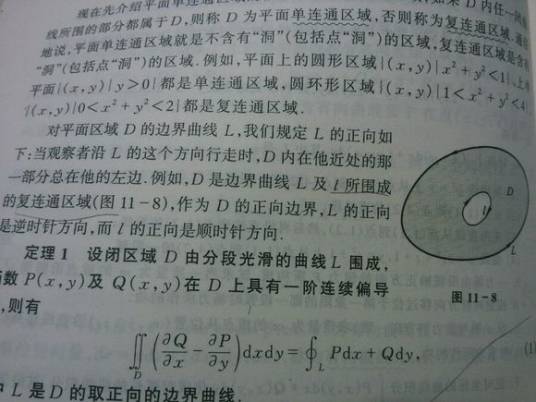 现在先介绍平面单连通区域
线所围的部分都属于D,则称 D 为平面单连通区域,否则称为复连通区域.
地说,平面单连通区域就是不含有“洞”(包括点“洞”)的区域,复连通区域是含有
“洞”(包括点“洞”)的区域.例如,平面上的圆形区域{(x,y)|x²+y²<1}、上半
平面{(x,y)|y>0}都是单连通区域,圆环形区域{(x,y)|1<x²+y²<4}
{(x,y)|0<x²+y²<2}都是复连通区域.
对平面区域 D 的边界曲线 L,我们规定 L 的正向如
下:当观察者沿 L 的这个方向行走时,D 内在他近处的那
一部分总在他的左边.例如,D 是边界曲线 L 及 l 所围成
的复连通区域(图 11-8),作为 D 的正向边界,L 的正向
是逆时针方向,而 l 的正向是顺时针方向.
D
l
L
图 11-8
定理 1 设闭区域 D 由分段光滑的曲线 L 围成,
函数 P(x,y)及 Q(x,y)在 D 上具有一阶连续偏导
,则有
∬_D (∂Q/∂x − ∂P/∂y)dxdy=∮_L Pdx+Qdy, (1)
中 L 是 D 的取正向的边界曲线.